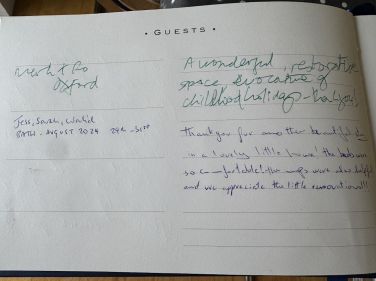 • GUESTS •
A wonderful, restorative
space evocative of
childhood holidays - thank you!
Oxford
Jess, Sarah,
BATH - AUGUST 2024
Thank you for another beautiful
in a lovely little house! The beds were
so comfortable! the were also helpful
and we appreciate the little renovations!!